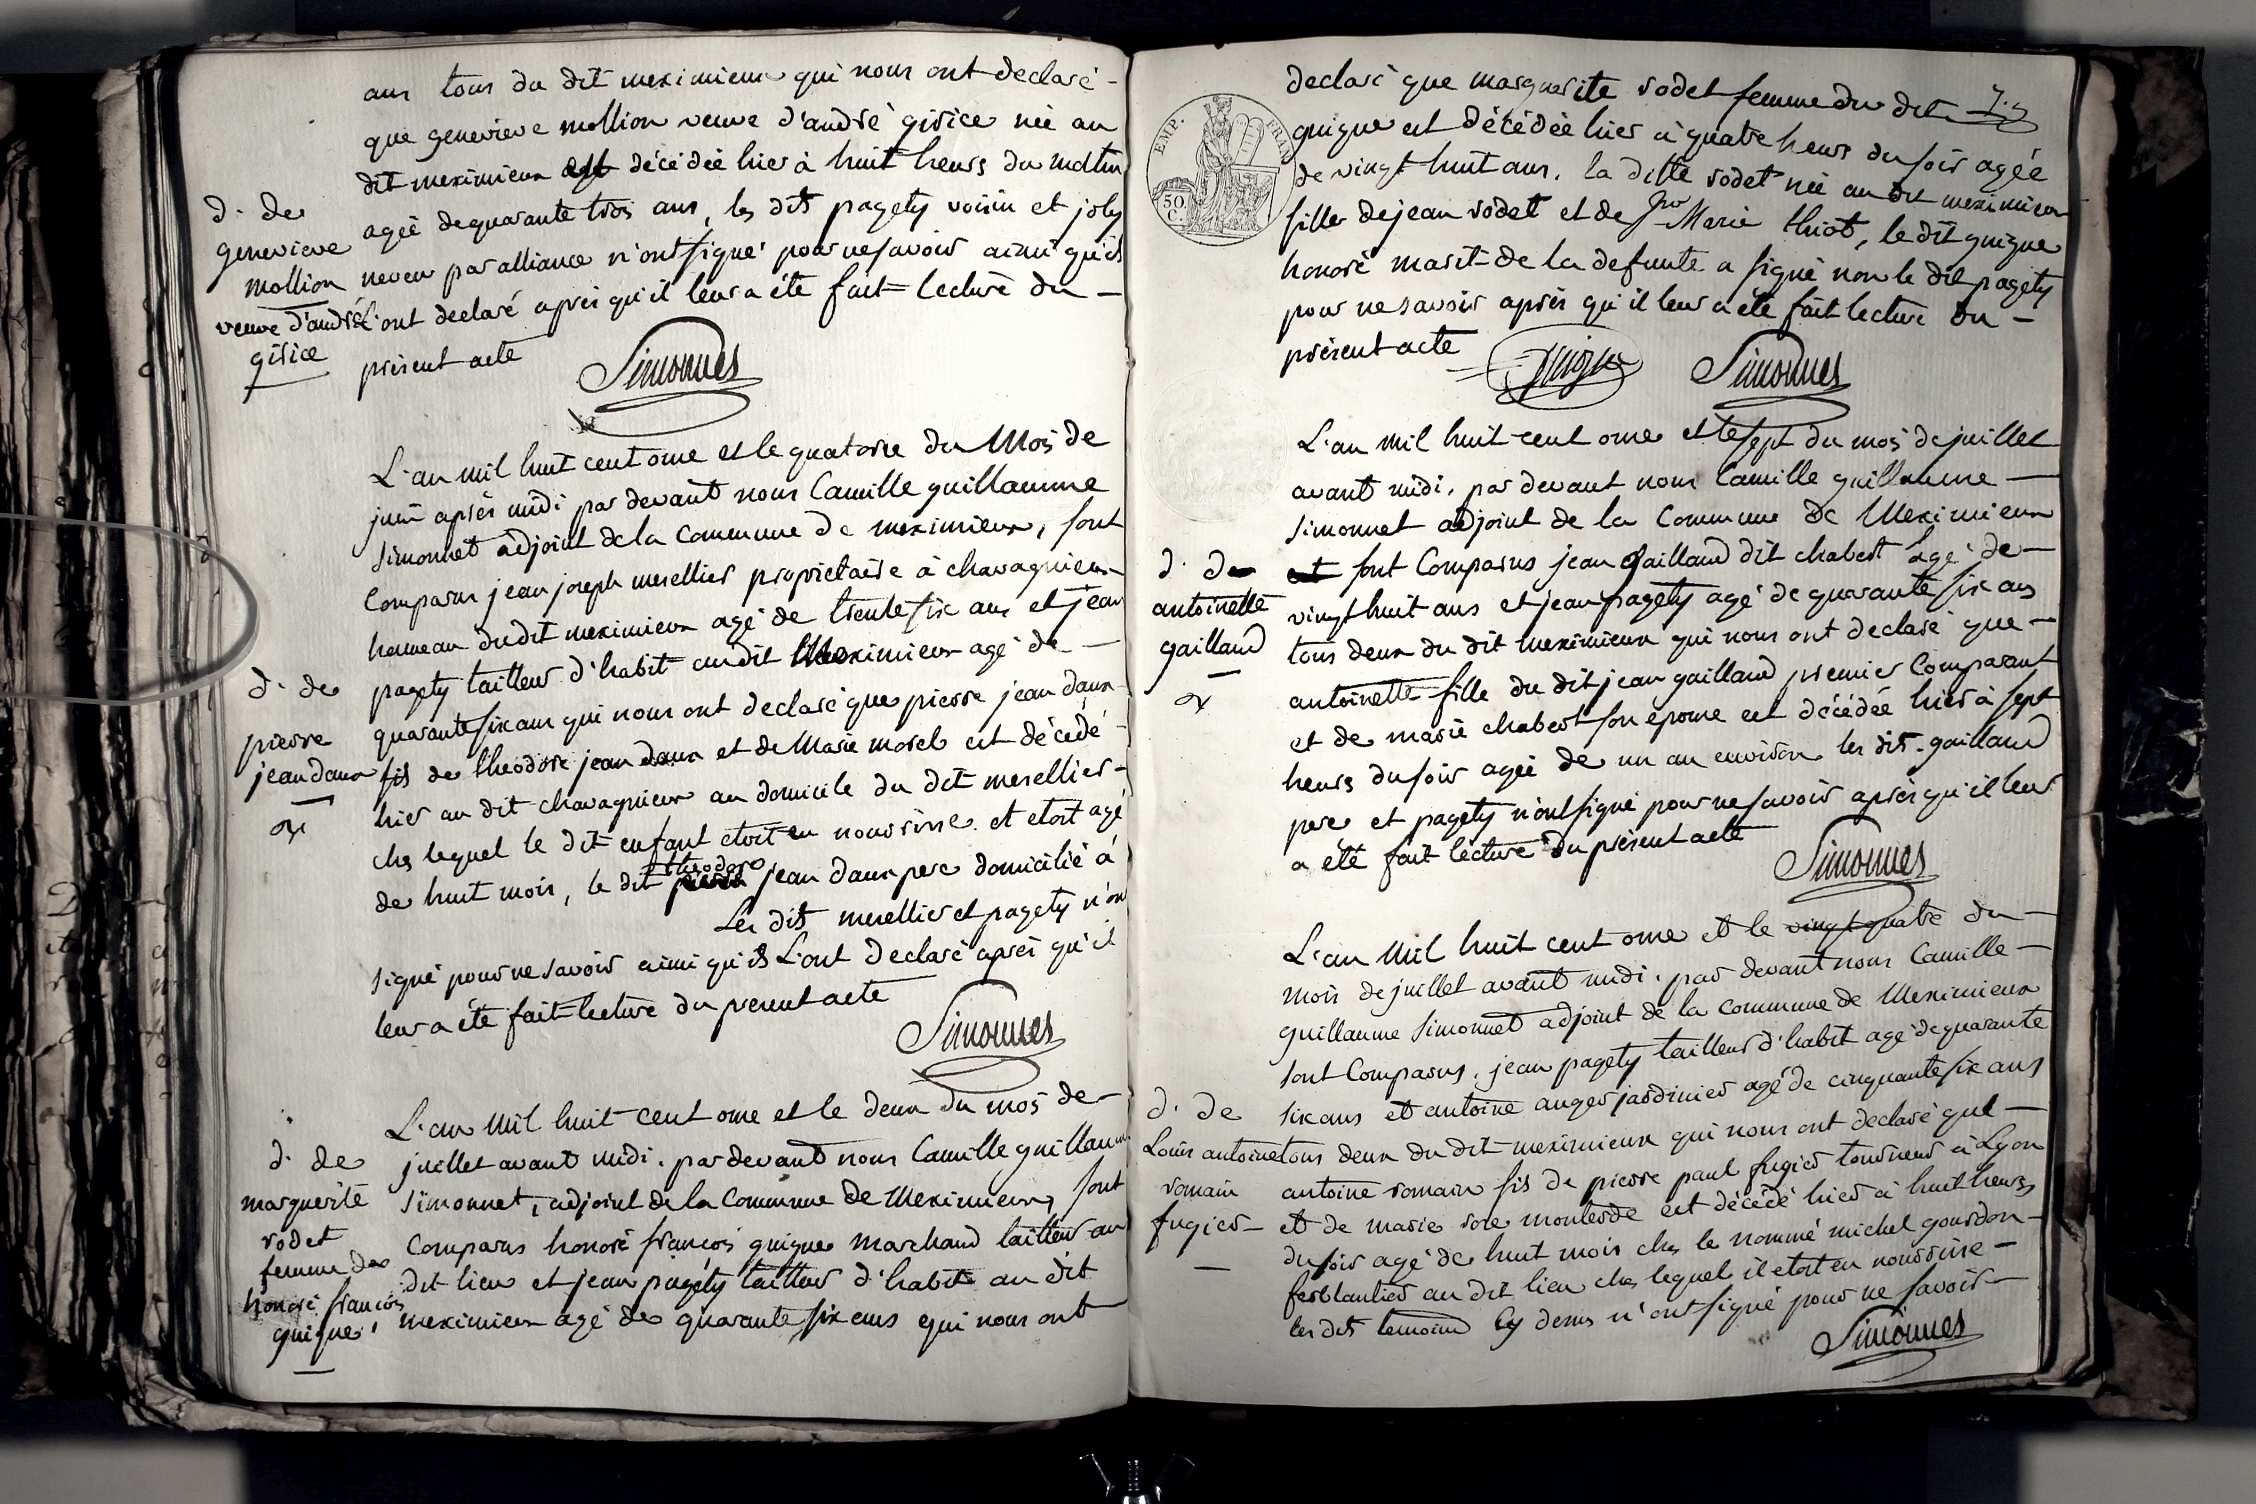 ans tous du dit meximieux qui nous ont declaré -
que genevieve mollion veuve d'andré girice née au
dit meximieux est décédée hier à huit heurs du matin
d. de
genevieve
mollion
veuve d'andré
girice
agée de quarante trois ans, les dits pagety voisin et joly
neveu par alliance n'ont signé pour ne savoir ainsi qu'ils
l'ont declaré après qu'il leur a été fait lecture du -
présent acte
Simonnet
L'an mil huit cent onze et le quatorze du Mois de
juin après midi par devant nous Camille guillaumme
Simonnet adjoint de la commune de meximieux, sont
comparus jean joseph merellier propriétaire à chavagnieux
hameau dudit meximieux agé de trente six ans et jean
d. de
pierre
jean daux
pagety tailleur d'habit au dit Meximieux agé de -
quarante six ans qui nous ont declaré que pierre jean daux
fils de theodore jean daux et de Marie morel est décédé -
hier au dit chavagnieux au domicile du dit merellier -
chez lequel le dit enfant etoit en nourrisse et etoit agé
de huit mois, le dit theodore jean daux pere domicilié à
Les dits merellier et pagety n'on
signé pour ne savoir ainsi qu'ils L'ont declaré après qu'il
leur a été fait lecture du present acte
Simonnet
L'an Mil huit cent onze et le deux du mois de -
d. de
marguerite
rodet
femme de
honoré françois
guigue
juillet avant midi. par devant nous Camille guillaum
Simonnet, adjoint de la Commune de Meximieux, sont
comparus honoré françois guigue marchand tailleur au
dit lieu et jean pagety tailleur d'habit au dit
meximieux agé de quarante six ans qui nous ont
declaré que marguerite rodet femme du dit
guigue est décédée hier à quatre heurs du soir agée
de vingt huit ans. la ditte rodet née au dit meximieux
fille de jean rodet et de Marie thiot, le dit guigue
honoré marit de la defunte a signé non le dit pagety
pour ne savoir après qu'il leur a été fait lecture du -
présent acte
EMP. FRAN
50 C.
guigue
Simonnet
L'an Mil huit cent onze et le sept du mois de juillet
avant midi. par devant nous Camille guillaume -
Simonnet adjoint de la Commune de Meximieux
d. de
antoinette
gaillaud
et sont Comparus jean gaillaud dit chabert agé de -
vingt huit ans et jean pagety agé de quarante six ans
tous deux du dit Meximieux qui nous ont declaré que -
antoinette fille du dit jean gaillaud premier Comparant
et de marie chabert son épouse est décédée hier à sept
heurs du soir agée de un an environ les dits gaillaud
pere et pagety n'ont signé pour ne savoir après qu'il leur
a été fait lecture du présent acte
Simonnet
L'an Mil huit cent onze et le vingt quatre du -
mois de juillet avant midi. par devant nous Camille -
guillaume Simonnet adjoint de la Commune de Meximieux
sont Comparus. jean pagety tailleur d'habit agé de quarante
six ans et antoine anger jardinier agé de cinquante six ans
d. de
Louis antoine
romain
fugier -
tous deux du dit meximieux qui nous ont declaré que -
antoine romain fils de pierre paul fugier tourneur à Lyon
et de marie rose monterde est décédé hier à huit heurs
du soir agé de huit mois chez le nommé michel gourdon -
ferblantier au dit lieu chez lequel il etoit en nourrisse -
les dits temoins cy dessus n'ont signé pour ne savoir -
Simonnet